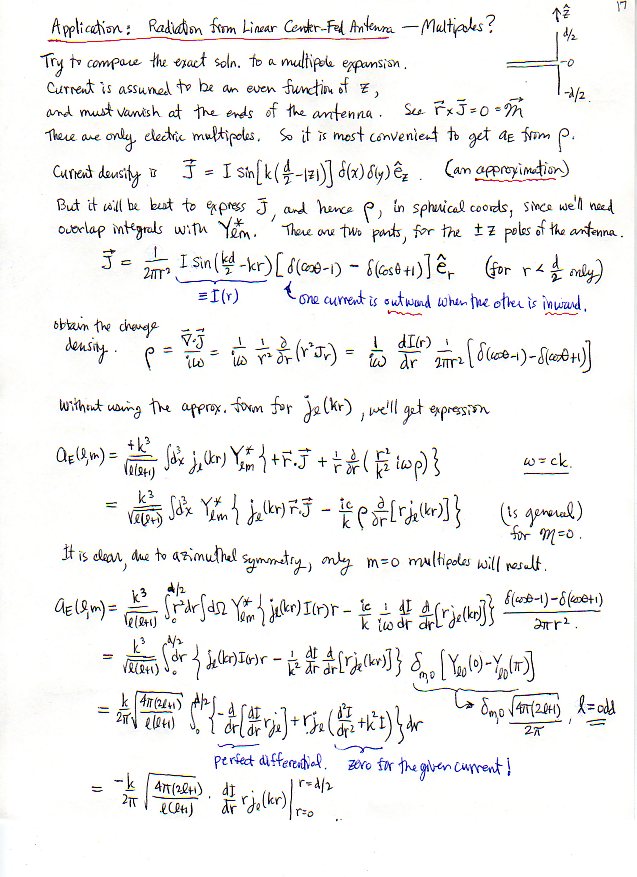 17
Application: Radiation from Linear Center-Fed Antenna — Multipoles?
↑ẑ
d/2
-0
-d/2
Try to compare the exact soln. to a multipole expansion.
Current is assumed to be an even function of z,
and must vanish at the ends of the antenna. See r⃗ × J⃗ = 0 = m⃗
There are only electric multipoles. So it is most convenient to get a_E from ρ.
Current density is J⃗ = I sin[k(d/2 - |z|)] δ(x) δ(y) ê_z. (an approximation)
But it will be best to express J⃗, and hence ρ, in spherical coords, since we'll need
overlap integrals with Y*_lm. There are two parts, for the ± z poles of the antenna.
J⃗ = 1/(2πr²) I sin(kd/2 - kr) [δ(cosθ-1) - δ(cosθ+1)] ê_r (for r < d/2 only)
≡ I(r) one current is outward when the other is inward.
obtain the charge
density. ρ = ∇⃗·J⃗/(iω) = 1/(iω) 1/r² ∂/∂r (r² J_r) = 1/(iω) dI(r)/dr 1/(2πr²) [δ(cosθ-1) - δ(cosθ+1)]
Without using the approx. form for j_l(kr), we'll get expression
a_E(l,m) = +k³/√(l(l+1)) ∫d³x j_l(kr) Y*_lm { + r⃗·J⃗ + 1/r ∂/∂r ( r²/k² iωρ) } ω = ck.
= k³/√(l(l+1)) ∫d³x Y*_lm { j_l(kr) r⃗·J⃗ - ic/k ρ ∂/∂r [r j_l(kr)] } (is general)
for m=0.
It is clear, due to azimuthal symmetry, only m=0 multipoles will result.
a_E(l,m) = k³/√(l(l+1)) ∫₀^{d/2} r²dr ∫dΩ Y*_lm { j_l(kr) I(r) r - ic/k 1/(iω) dI/dr d/dr [r j_l(kr)] } (δ(cosθ-1) - δ(cosθ+1))/(2πr²).
= k³/√(l(l+1)) ∫₀^{d/2} dr { j_l(kr) I(r) r - 1/k² dI/dr d/dr [r j_l(kr)] } δ_m0 [Y_l0(0) - Y_l0(π)]
= k/2π √(4π(2l+1)/(l(l+1))) ∫₀^{d/2} { - d/dr [dI/dr r j_l] + r j_l ( d²I/dr² + k²I) } dr → δ_m0 √(4π(2l+1))/2π, l = odd
perfect differential. zero for the given current!
= -k/2π √(4π(2l+1)/(l(l+1))) · dI/dr r j_l(kr) |_{r=0}^{r=d/2}